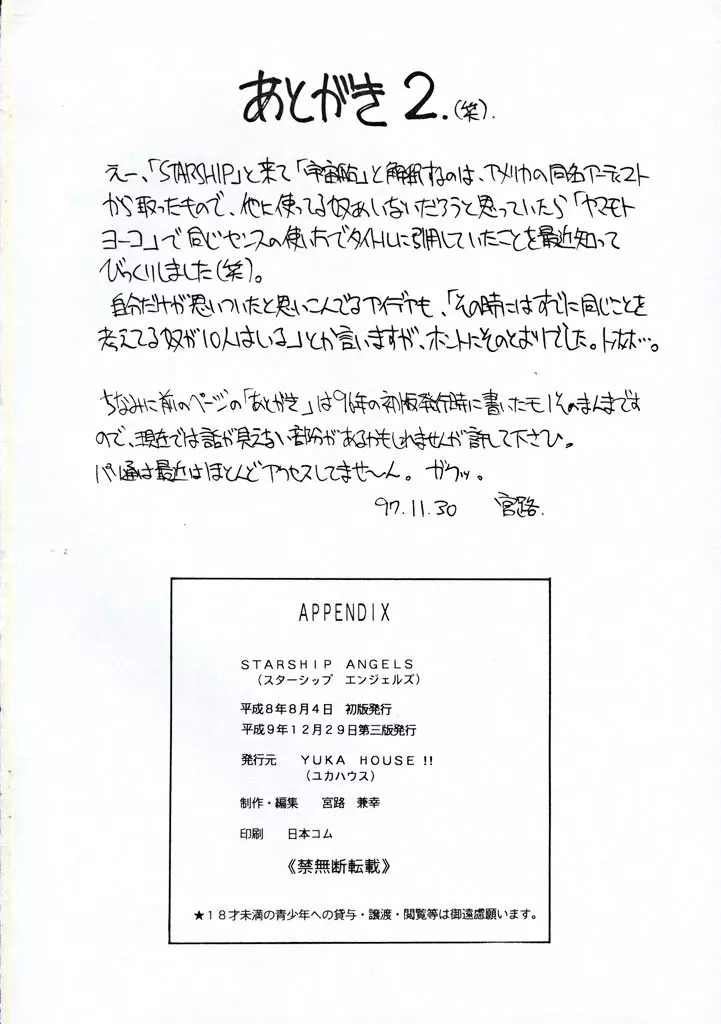 あとがき 2.(笑).
えー、「STARSHIP」と来て「宇宙船」と解釈するのは、アメリカの同名アーティスト
から取ったもので、他に使ってる奴ぁいないだろうと思っていたら「ヤマモト
ヨーコ」で同じセンスの使い方でタイトルに引用していたことを最近知って
びっくりしました(笑)。
自分だけが思いついたと思いこんでるアイデアも、「その時にはすでに同じことを
考えてる奴が10人はいる」とか言いますが、ホントにそのとおりでした。トホホ…。
ちなみに前のページの「あとがき」は96年の初版発行時に書いたモノそのまんまです
ので、現在では話が見えない部分があるかもしれませんが許して下さひ。
パソ通は最近はほとんどアクセスしてませーん。ガクッ。
97.11.30 宮路.
APPENDIX
STARSHIP ANGELS
(スターシップ エンジェルズ)
平成8年8月4日 初版発行
平成9年12月29日第三版発行
発行元 YUKA HOUSE!!
(ユカハウス)
制作・編集 宮路 兼幸
印刷 日本コム
《禁無断転載》
★18才未満の青少年への貸与・譲渡・閲覧等は御遠慮願います。